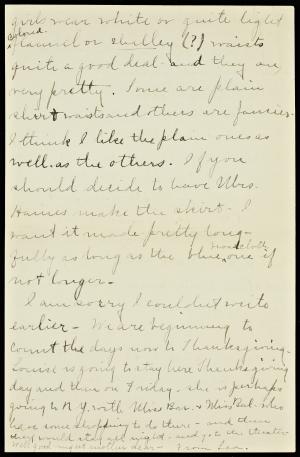 girls wear white or quite light
colored
flannel or challey (?) waists
quite a good deal - and they are
very pretty. Some are plain
shirt waists and others are fancier.
I think I like the plain ones as
well as the others. If you
should decide to have Mrs.
Haines make the skirt - I
want it made pretty long -
fully as long as the blue broadcloth one if
not longer -
I am sorry I couldn't write
earlier - We are beginning to
count the days now to Thanksgiving.
Louise is going to stay here Thanksgiving
day and then on Friday - she is perhaps
going to N.Y. with Miss Bar. & Miss Bul. who
have some shopping to do there - and then
they would stay all night - and go to the theater
Well good night mother dear - From